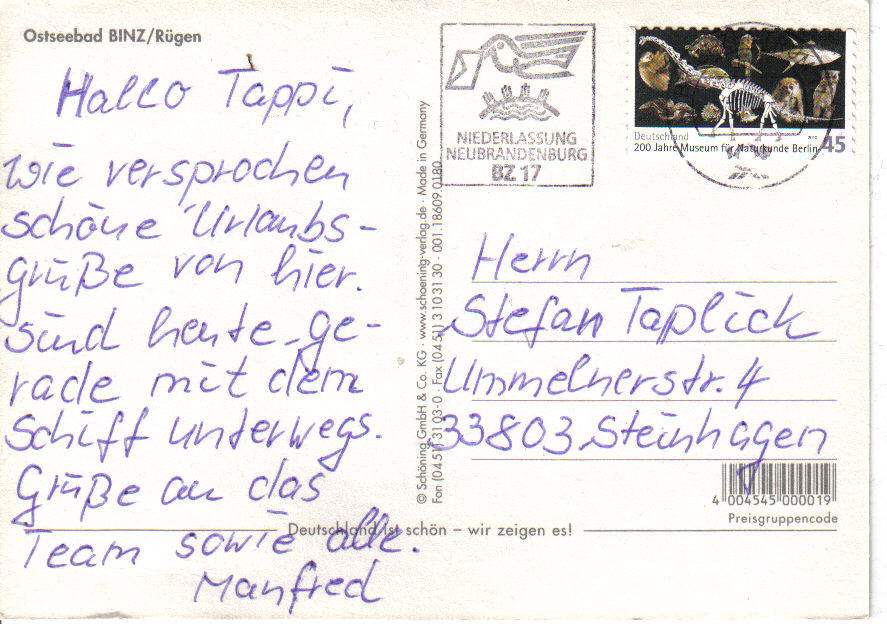 Ostseebad BINZ/Rügen
Hallo Tappi,
wie versprochen
schöne Urlaubs-
grüße von hier.
sind heute ge-
rade mit dem
Schiff unterwegs.
Grüße an das
Team sowie alle.
Manfred
Deutschland ist schön – wir zeigen es!
© Schöning GmbH & Co. KG · www.schoening-verlag.de · Made in Germany
Fon (04 51) 3 10 3-0 · Fax (04 51) 3 10 31 30 · 001.18609.0180
NIEDERLASSUNG
NEUBRANDENBURG
BZ 17
Deutschland
200 Jahre Museum für Naturkunde Berlin
45
Herrn
Stefan Taplick
Ummelnerstr. 4
33803 Steinhagen
4 004545 000019
Preisgruppencode